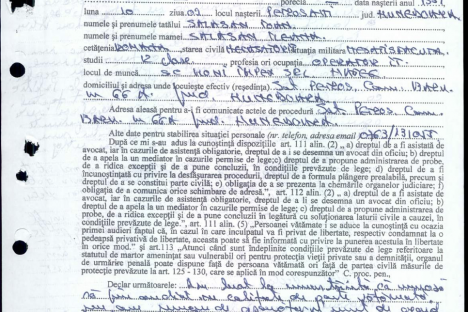 porecla data nașterii
luna 10 ziua 02 locul nașterii PETROȘANI jud. HUNEDOARA
numele și prenumele tatălui
numele și prenumele mamei
cetățenia ROMÂNĂ, starea civilă NECĂSĂTORIT situația militară
studii 12 clase profesia ori ocupația OPERATOR IT.
locul de muncă SC
domiciliul și adresa unde locuiește efectiv (reședința) Sat. PETROS, Com. BARU
nr 66 A. jud. HUNEDOARA
Adresa aleasă pentru a-i fi comunicate actele de procedură Sat. PETROS, Com.
BARU nr 66A jud. HUNEDOARA
Alte date pentru stabilirea situației personale (nr. telefon, adresa email)
După ce mi s-au adus la cunoștință dispozițiile art. 111 alin. (2) „ a) dreptul de a fi asistată de
avocat, iar în cazurile de asistență obligatorie, dreptul de a i se desemna un avocat din oficiu; b) dreptul de
a apela la un mediator în cazurile permise de lege;c) dreptul de a propune administrarea de probe,
de a ridica excepții și de a pune concluzii, în condițiile prevăzute de lege; d) dreptul de a fi
încunoștințată cu privire la desfășurarea procedurii, dreptul de a formula plângere prealabilă, precum și
dreptul de a se constitui parte civilă; e) obligația de a se prezenta la chemările organelor judiciare; f)
obligația de a comunica orice schimbare de adresă.”, art. 112 alin. (2) „ a) dreptul de a fi asistată de
avocat, iar în cazurile de asistență obligatorie, dreptul de a i se desemna un avocat din oficiu; b)
dreptul de a apela la un mediator în cazurile permise de lege; c) dreptul de a propune administrarea de
probe, de a ridica excepții și de a pune concluzii în legătură cu soluționarea laturii civile a cauzei, în
condițiile prevăzute de lege.”, art. 111 alin. (5) „Persoanei vătămate i se aduce la cunoștință cu ocazia
primei audieri faptul că, în cazul în care inculpatul va fi privat de libertate, respectiv condamnat la o
pedeapsă privativă de libertate, aceasta poate să fie informată cu privire la punerea acestuia în libertate
în orice mod.” și art.113 „Atunci când sunt îndeplinite condițiile prevăzute de lege referitoare la
statutul de martor amenințat sau vulnerabil ori pentru protecția vieții private sau a demnității, organul
de urmărire penală poate dispune față de persoana vătămată ori față de partea civilă măsurile de
protecție prevăzute la art. 125 - 130, care se aplică în mod corespunzător” C. proc. pen.,
Declar următoarele: Am luat la cunoștință că urmează
să fiu audiat în calitate de parte vătămată